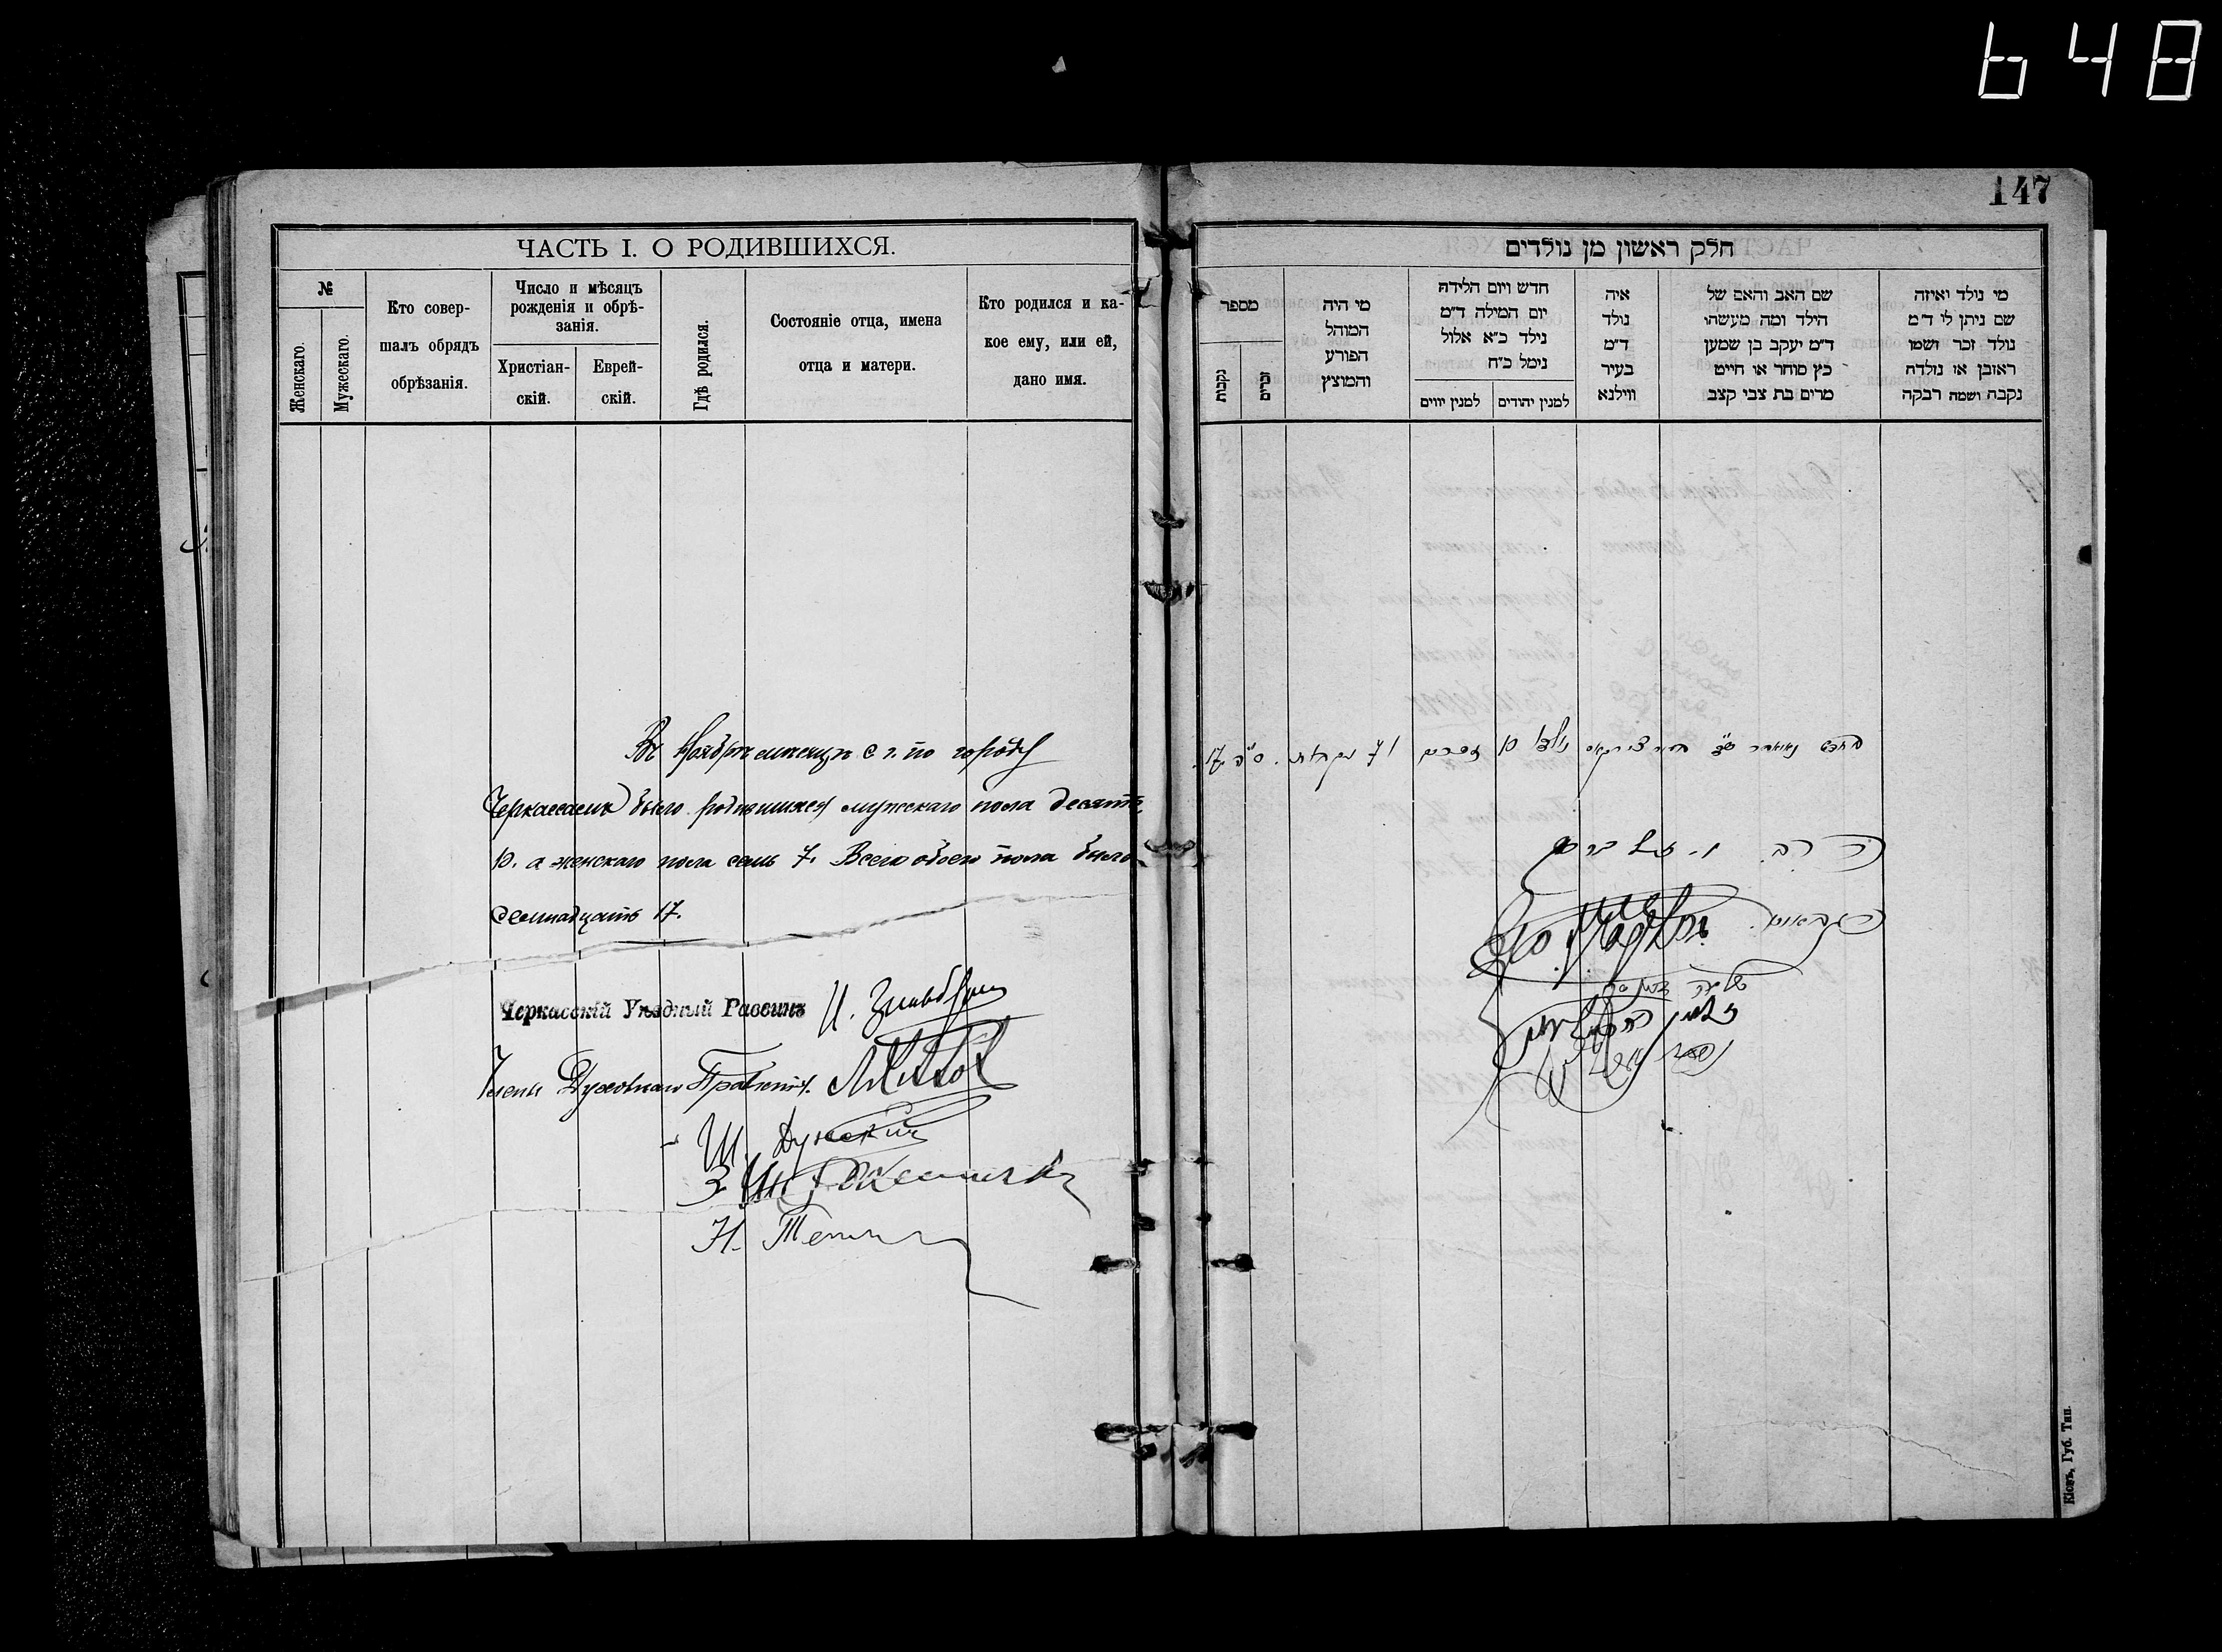 648
147
ЧАСТЬ I. О РОДИВШИХСЯ.
№
Женскаго.
Мужескаго.
Кто совер-
шалъ обрядъ
обрѣзанія.
Число и мѣсяцъ
рожденія и обрѣ-
занія.
Христіан-
скій.
Еврей-
скій.
Гдѣ родился.
Состояніе отца, имена
отца и матери.
Кто родился и ка-
кое ему, или ей,
дано имя.
Въ Ноябрѣ мѣсяцѣ с. г. по городу
Черкассамъ было родившихся мужскаго пола десять
10. а женскаго пола семь 7. Всего обоего пола было
семнадцать 17.
Черкасскій Уѣздный Раввинъ И.
Члены Духовнаго Правленія.
Ш.
З.
Н.
חלק ראשון מן נולדים
מי נולד ואיזה
שם ניתן לו ד״מ
נולד זכר ושמו
ראובן או נולדה
נקבה ושמה רבקה
שם האב והאם של
הילד ומה מעשהו
ד״מ יעקב בן שמעון
כץ סוחר או חייט
מרים בת צבי קצב
איה
נולד
ד״מ
בעיר
ווילנא
חדש ויום הלידה
יום המילה ד״מ
נילד כ״א אלול
נימל כ״ח
למנין יהודים
למנין יוונים
מי היה
המוהל
הפורע
והמוצץ
מספר
זכרים
נקבות
נולדו 10 זכרים ו 7 נקבות. ס״ה 17.
הרב
הגבאים.
Кіевъ, Губ. Тип.